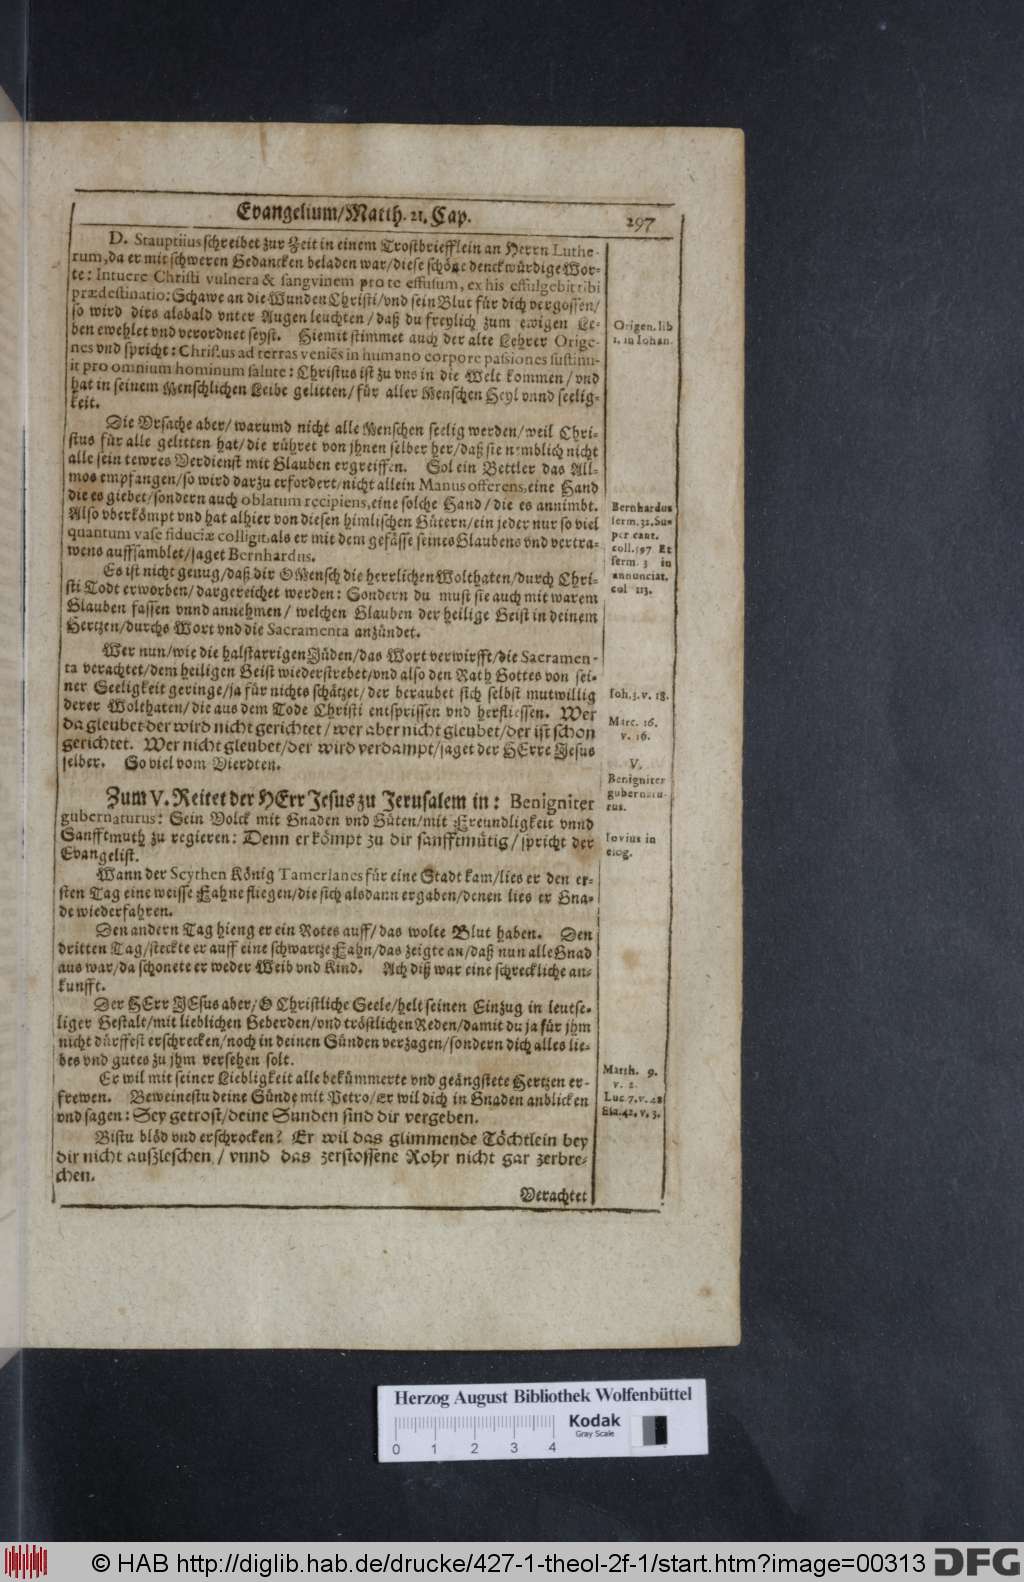 Evangelium/Matth. 21. Cap.
297
D. Stauptiius schreibet zur Zeit in einem Trostbriefflein an Herrn Luthe-
rum, da er mit schweren Gedancken beladen war/diese schöne denckwürdige Wor-
te: Intuere Christi vulnera & sangvinem pro te effusum, ex his effulgebit tibi
prædestinatio: Schawe an die Wunden Christi/vnd sein Blut für dich vergossen/
so wird dirs alsbald vnter Augen leuchten/daß du freylich zum ewigen Le-
ben erwehlet vnd verordnet seyst. Hiemit stimmet auch der alte Lehrer Orige-
nes vnd spricht: Christus ad terras veniēs in humano corpore passiones sustinu-
it pro omnium hominum salute: Christus ist zu vns in die Welt kommen/vnd
hat in seinem Menschlichen Leibe gelitten/für aller Menschen Heyl vnnd seelig-
keit.
Die Vrsache aber/warumb nicht alle Menschen seelig werden/weil Chri-
stus für alle gelitten hat/die rühret von jhnen selber her/daß sie nemblich nicht
alle sein tewres Verdienst mit Glauben ergreiffen. Sol ein Bettler das All-
mos empfangen/so wird darzu erfordert/nicht allein Manus offerens, eine Hand
die es giebet/sondern auch oblatum recipiens, eine solche Hand/die es annimbt.
Also vberkömpt vnd hat alhier von diesen himlischen Gütern/ein jeder nur so viel
quantum vase fiduciæ colligit, als er mit dem gefässe seines Glaubens vnd vertra-
wens auffsamblet/saget Bernhardus.
Es ist nicht genug/daß dir O Mensch die herrlichen Wolthaten/durch Chri-
sti Todt erworben/dargereichet werden: Sondern du must sie auch mit warem
Glauben fassen vnnd annehmen/welchen Glauben der heilige Geist in deinem
Hertzen/durchs Wort vnd die Sacramenta anzündet.
Wer nun/wie die halstarrigen Jüden/das Wort verwirfft/die Sacramen-
ta verachtet/dem heiligen Geist wiederstrebet/vnd also den Rath Gottes von sei-
ner Seeligkeit geringe/ja für nichts schätzet/der beraubet sich selbst mutwillig
derer Wolthaten/die aus dem Tode Christi entsprissen vnd herfliessen. Wer
da gleubet der wird nicht gerichtet/wer aber nicht gleubet/der ist schon
gerichtet. Wer nicht gleubet/der wird verdampt/saget der HErre Jesus
selber. So viel vom Vierdten.
Zum V. Reitet der HErr Jesus zu Jerusalem in: Benigniter
gubernaturus: Sein Volck mit Gnaden vnd Güten/mit Freundligkeit vnnd
Sanfftmuth zu regieren: Denn er kömpt zu dir sanfftmütig/spricht der
Evangelist.
Wann der Scythen König Tamerlanes für eine Stadt kam/lies er den er-
sten Tag eine weisse Fahne fliegen/die sich alsdann ergaben/denen lies er Gna-
de wiederfahren.
Den andern Tag hieng er ein Rotes auff/das wolte Blut haben. Den
dritten Tag/steckte er auff eine schwartze Fahn/das zeigte an/daß nun alle Gnad
aus war/da schonete er weder Weib vnd Kind. Ach diß war eine schreckliche an-
kunfft.
Der HErr JEsus aber/O Christliche Seele/helt seinen Einzug in leutse-
liger Gestalt/mit lieblichen Geberden/vnd tröstlichen Reden/damit du ja für jhm
nicht dürffest erschrecken/noch in deinen Sünden verzagen/sondern dich alles lie-
bes vnd gutes zu jhm versehen solt.
Er wil mit seiner Liebligkeit alle bekümmerte vnd geängstete Hertzen er-
frewen. Beweinestu deine Sünde mit Petro/Er wil dich in Gnaden anblicken
vnd sagen: Sey getrost/deine Sunden sind dir vergeben.
Bistu blöd vnd erschrocken? Er wil das glimmende Töchtlein bey
dir nicht auszleschen/vnnd das zerstossene Rohr nicht gar zerbre-
chen.
Verachtet
Origen. lib
1. in Iohan.
Bernhardus
serm. 32. Su-
per cant.
coll. 597 Et
serm. 3 in
annunciat.
col 113.
Ioh. 3. v. 18.
Marc. 16.
v. 16.
V.
Benigniter
gubernatu-
rus.
Iovius in
elog.
Matth. 9.
v. 2.
Luc. 7. v. 48
Esa. 42. v. 3.
Herzog August Bibliothek Wolfenbüttel
Kodak
Gray Scale
0 1 2 3 4
© HAB http://diglib.hab.de/drucke/427-1-theol-2f-1/start.htm?image=00313
DFG